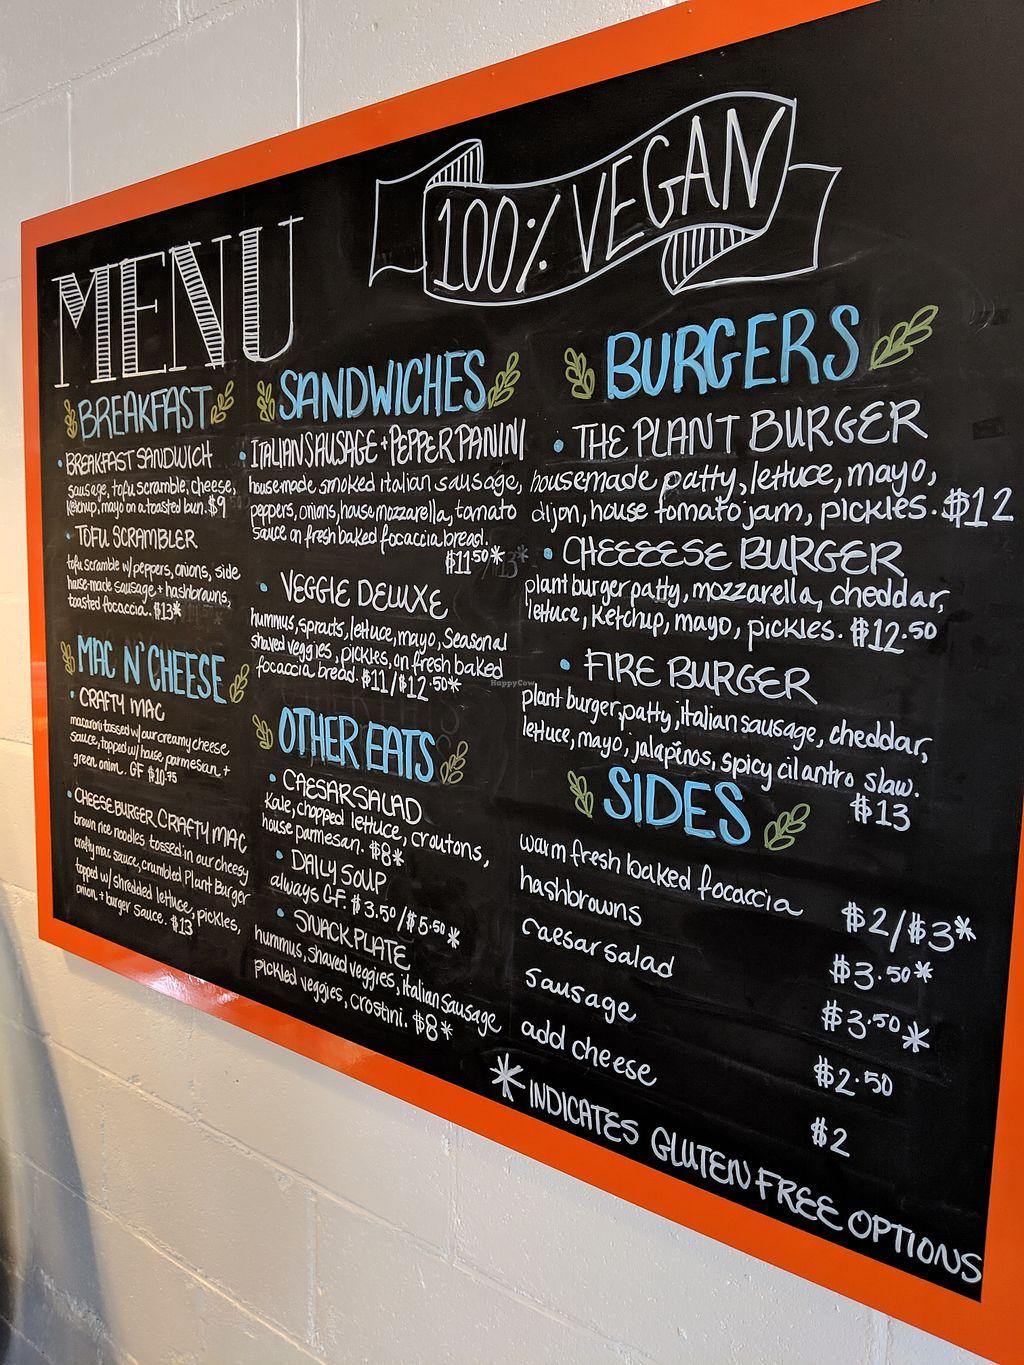 100% VEGAN
MENU
BREAKFAST
• BREAKFAST SANDWICH
sausage, tofu scramble, cheese,
ketchup, mayo on a toasted bun. $9
• TOFU SCRAMBLER
tofu scramble w/ peppers, onions, side
house-made sausage + hashbrowns,
toasted focaccia. $13*
MAC N' CHEESE
• CRAFTY MAC
macaroni tossed w/ our creamy cheese
sauce, topped w/ house parmesan +
green onion. GF $10.75
• CHEESEBURGER CRAFTY MAC
brown rice noodles tossed in our cheesy
crafty mac sauce, crumbled Plant Burger
topped w/ shredded lettuce, pickles,
onion, + burger sauce. $13
SANDWICHES
• ITALIAN SAUSAGE + PEPPER PANINI
housemade smoked italian sausage,
peppers, onions, house mozzarella, tomato
sauce on fresh baked focaccia bread.
$11.50*/13*
• VEGGIE DELUXE
hummus, sprouts, lettuce, mayo, Seasonal
shaved veggies, pickles, on fresh baked
focaccia bread. $11/$12.50*
OTHER EATS
• CAESAR SALAD
Kale, chopped lettuce, croutons,
house parmesan. $8*
• DAILY SOUP
always GF. $3.50/$5.50*
• SNACK PLATE
hummus, shaved veggies, italian sausage
pickled veggies, crostini. $8*
BURGERS
• THE PLANT BURGER
housemade patty, lettuce, mayo,
dijon, house tomato jam, pickles. $12
• CHEEEESE BURGER
plant burger patty, mozzarella, cheddar,
lettuce, ketchup, mayo, pickles. $12.50
• FIRE BURGER
plant burger, patty, italian sausage, cheddar,
lettuce, mayo, jalapiños, spicy cilantro slaw.
$13
SIDES
warm fresh baked focaccia $2/$3*
hashbrowns $3.50*
caesar salad $3.50*
sausage $2.50
add cheese $2
* INDICATES GLUTEN FREE OPTIONS
HappyCow